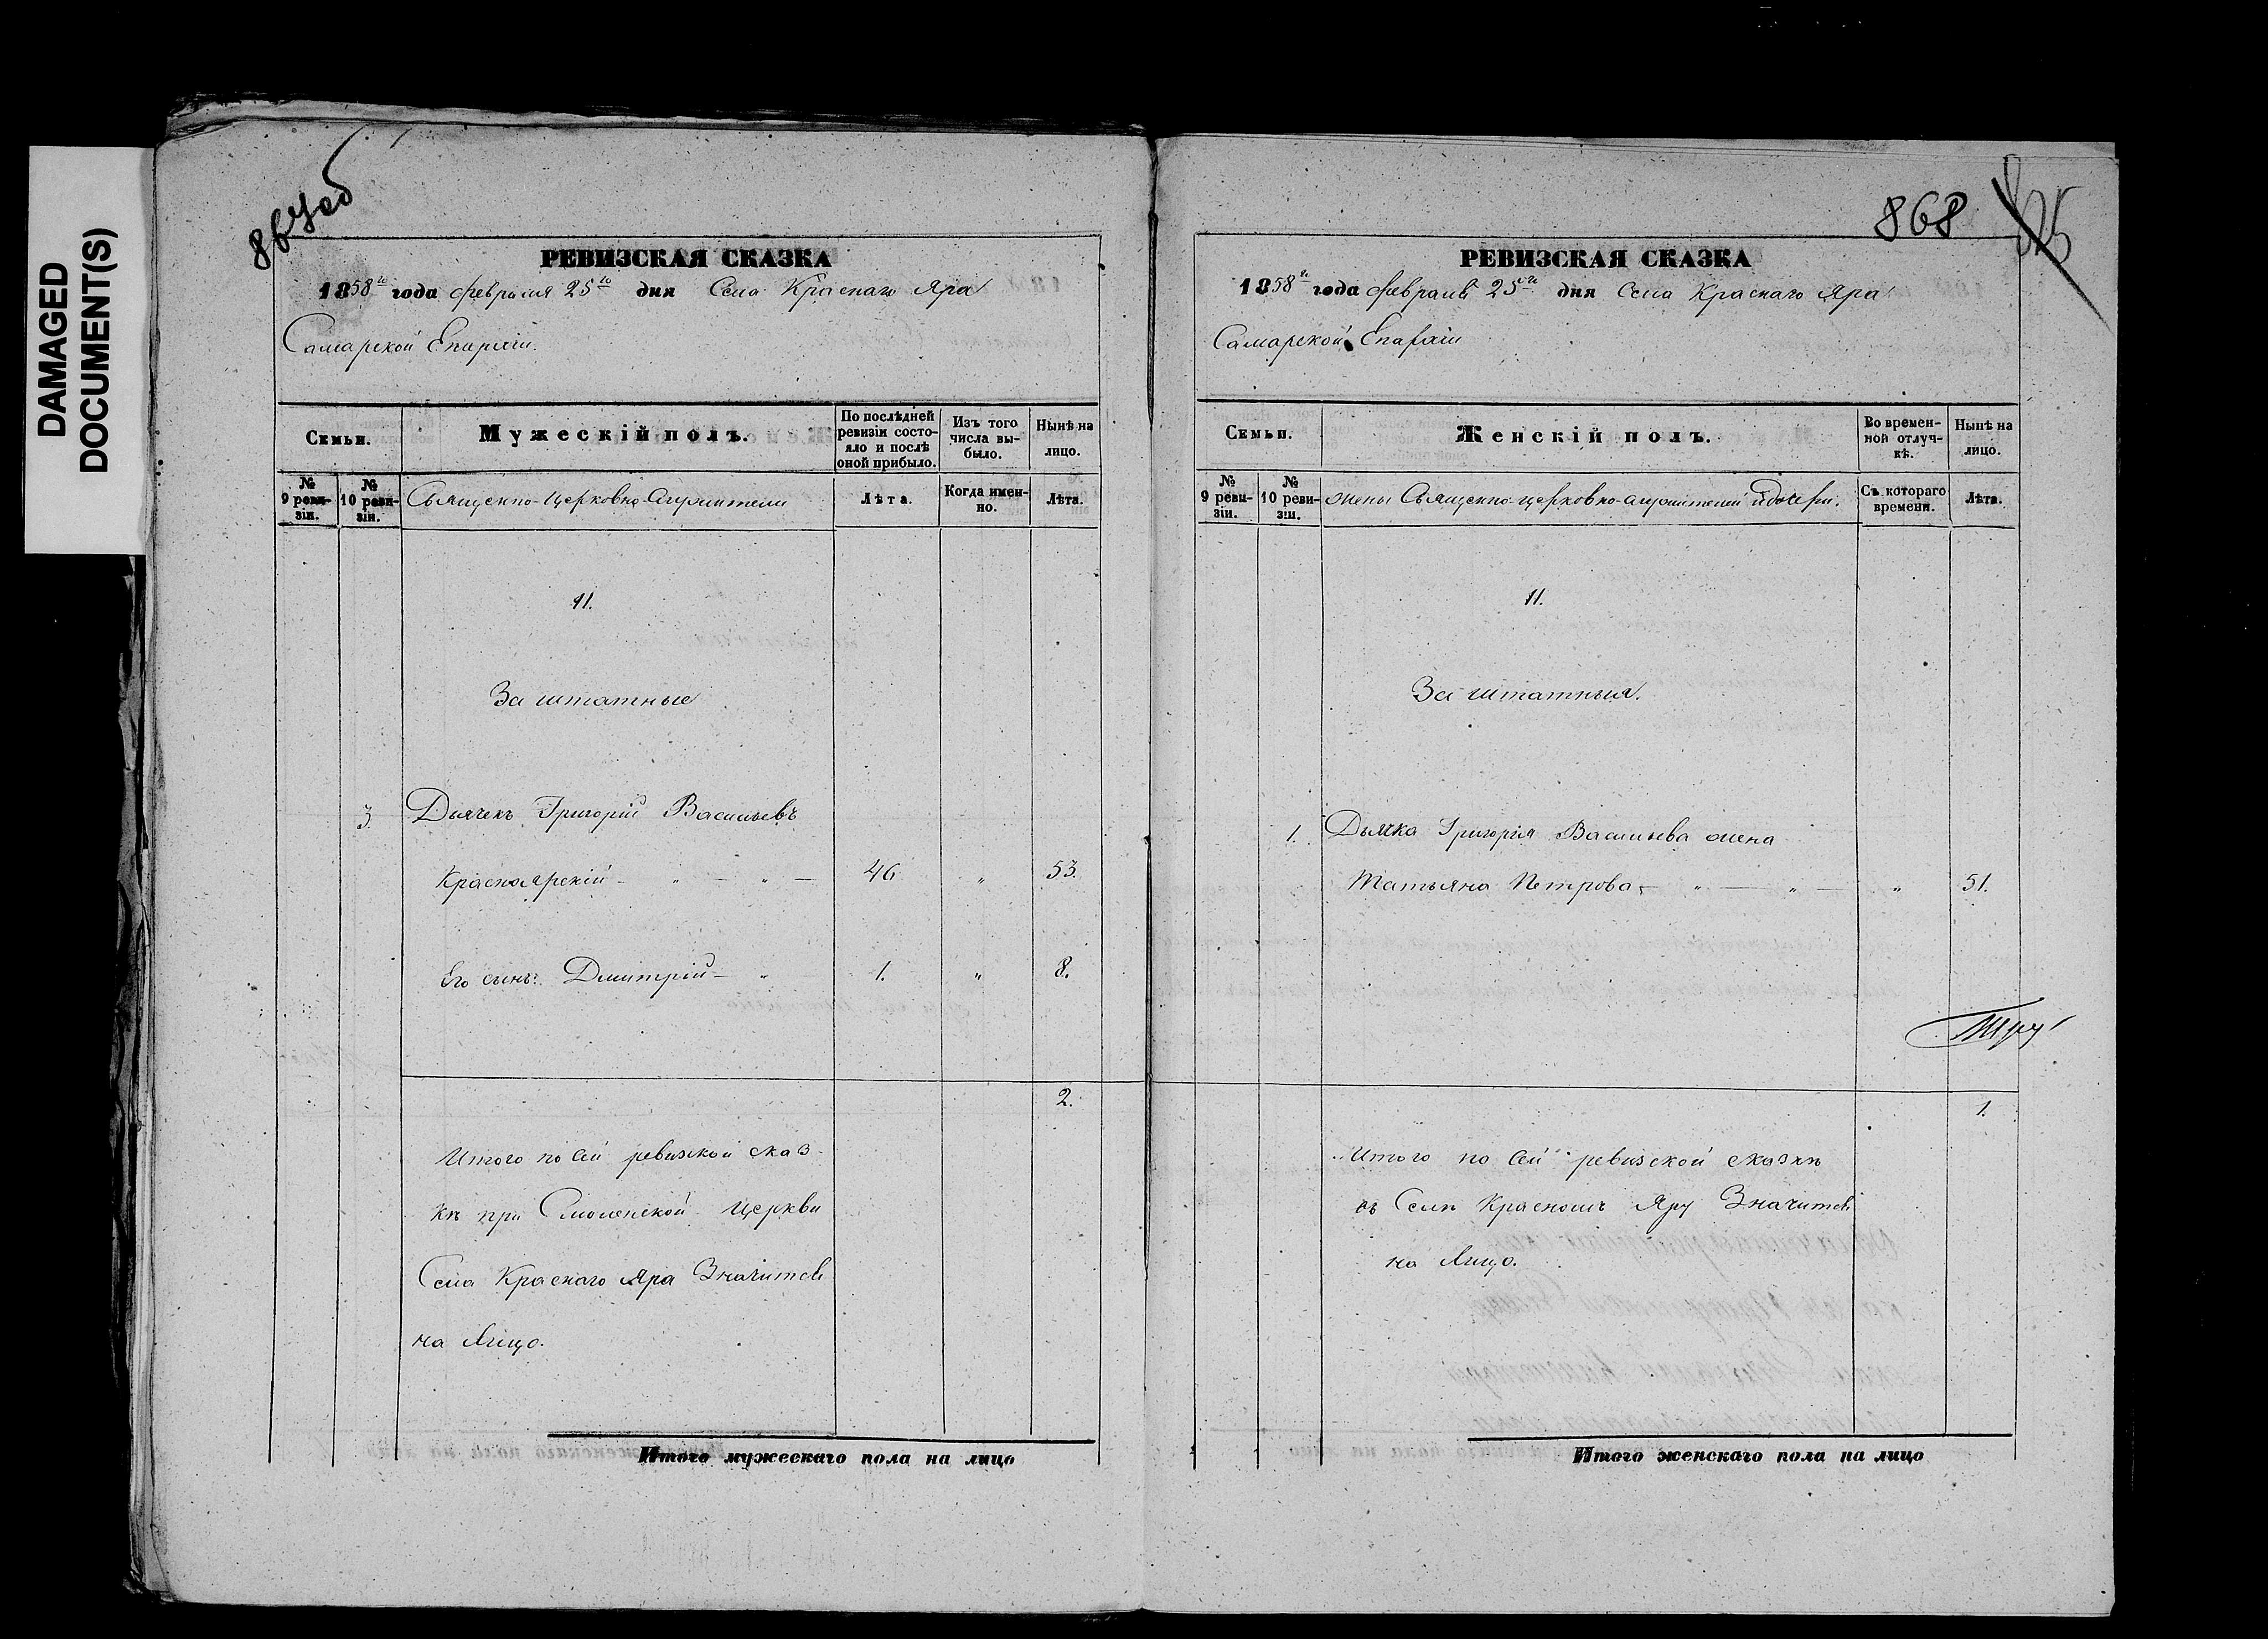 DAMAGED
DOCUMENT(S)
867об
РЕВИЗСКАЯ СКАЗКА
1858го года февраля 25го дня Села Краснаго Яра
Самарской Епархіи.
Семьи.
Мужескій полъ.
По послѣдней ревизіи состояло и послѣ оной прибыло.
Изъ того числа выбыло.
Нынѣ на лицо.
№ 9 ревизіи.
№ 10 ревизіи.
Священно-Церковно-Служители
Лѣта.
Когда именно.
Лѣта.
11.
Заштатные
3. Дьячекъ Григорій Васильевъ
Красноярскій — " — " — 46 " 53.
Его сынъ: Дмитрій — " 1. " 8.
2.
Итого по сей ревизской сказ-
кѣ при Смоленской Церкви
Села Краснаго Яра Значится
на Лицо.
Итого мужескаго пола на лицо
868
РЕВИЗСКАЯ СКАЗКА
1858го года февраля 25го дня Села Краснаго Яра
Самарской Епархіи
Семьи.
Женскій полъ.
Во временной отлучкѣ.
Нынѣ на лицо.
№ 9 ревизіи.
№ 10 ревизіи.
жены Священно-церковно-служителей и дочери.
Съ котораго времени.
Лѣта.
11.
Заштатныя.
1. Дьячка Григорія Васильева жена
Татьяна Петрова — " — " — " 51.
1.
Итого по сей ревизской сказкѣ
въ Селѣ Красномъ Яру Значится
на Лицо.
Итого женскаго пола на лицо